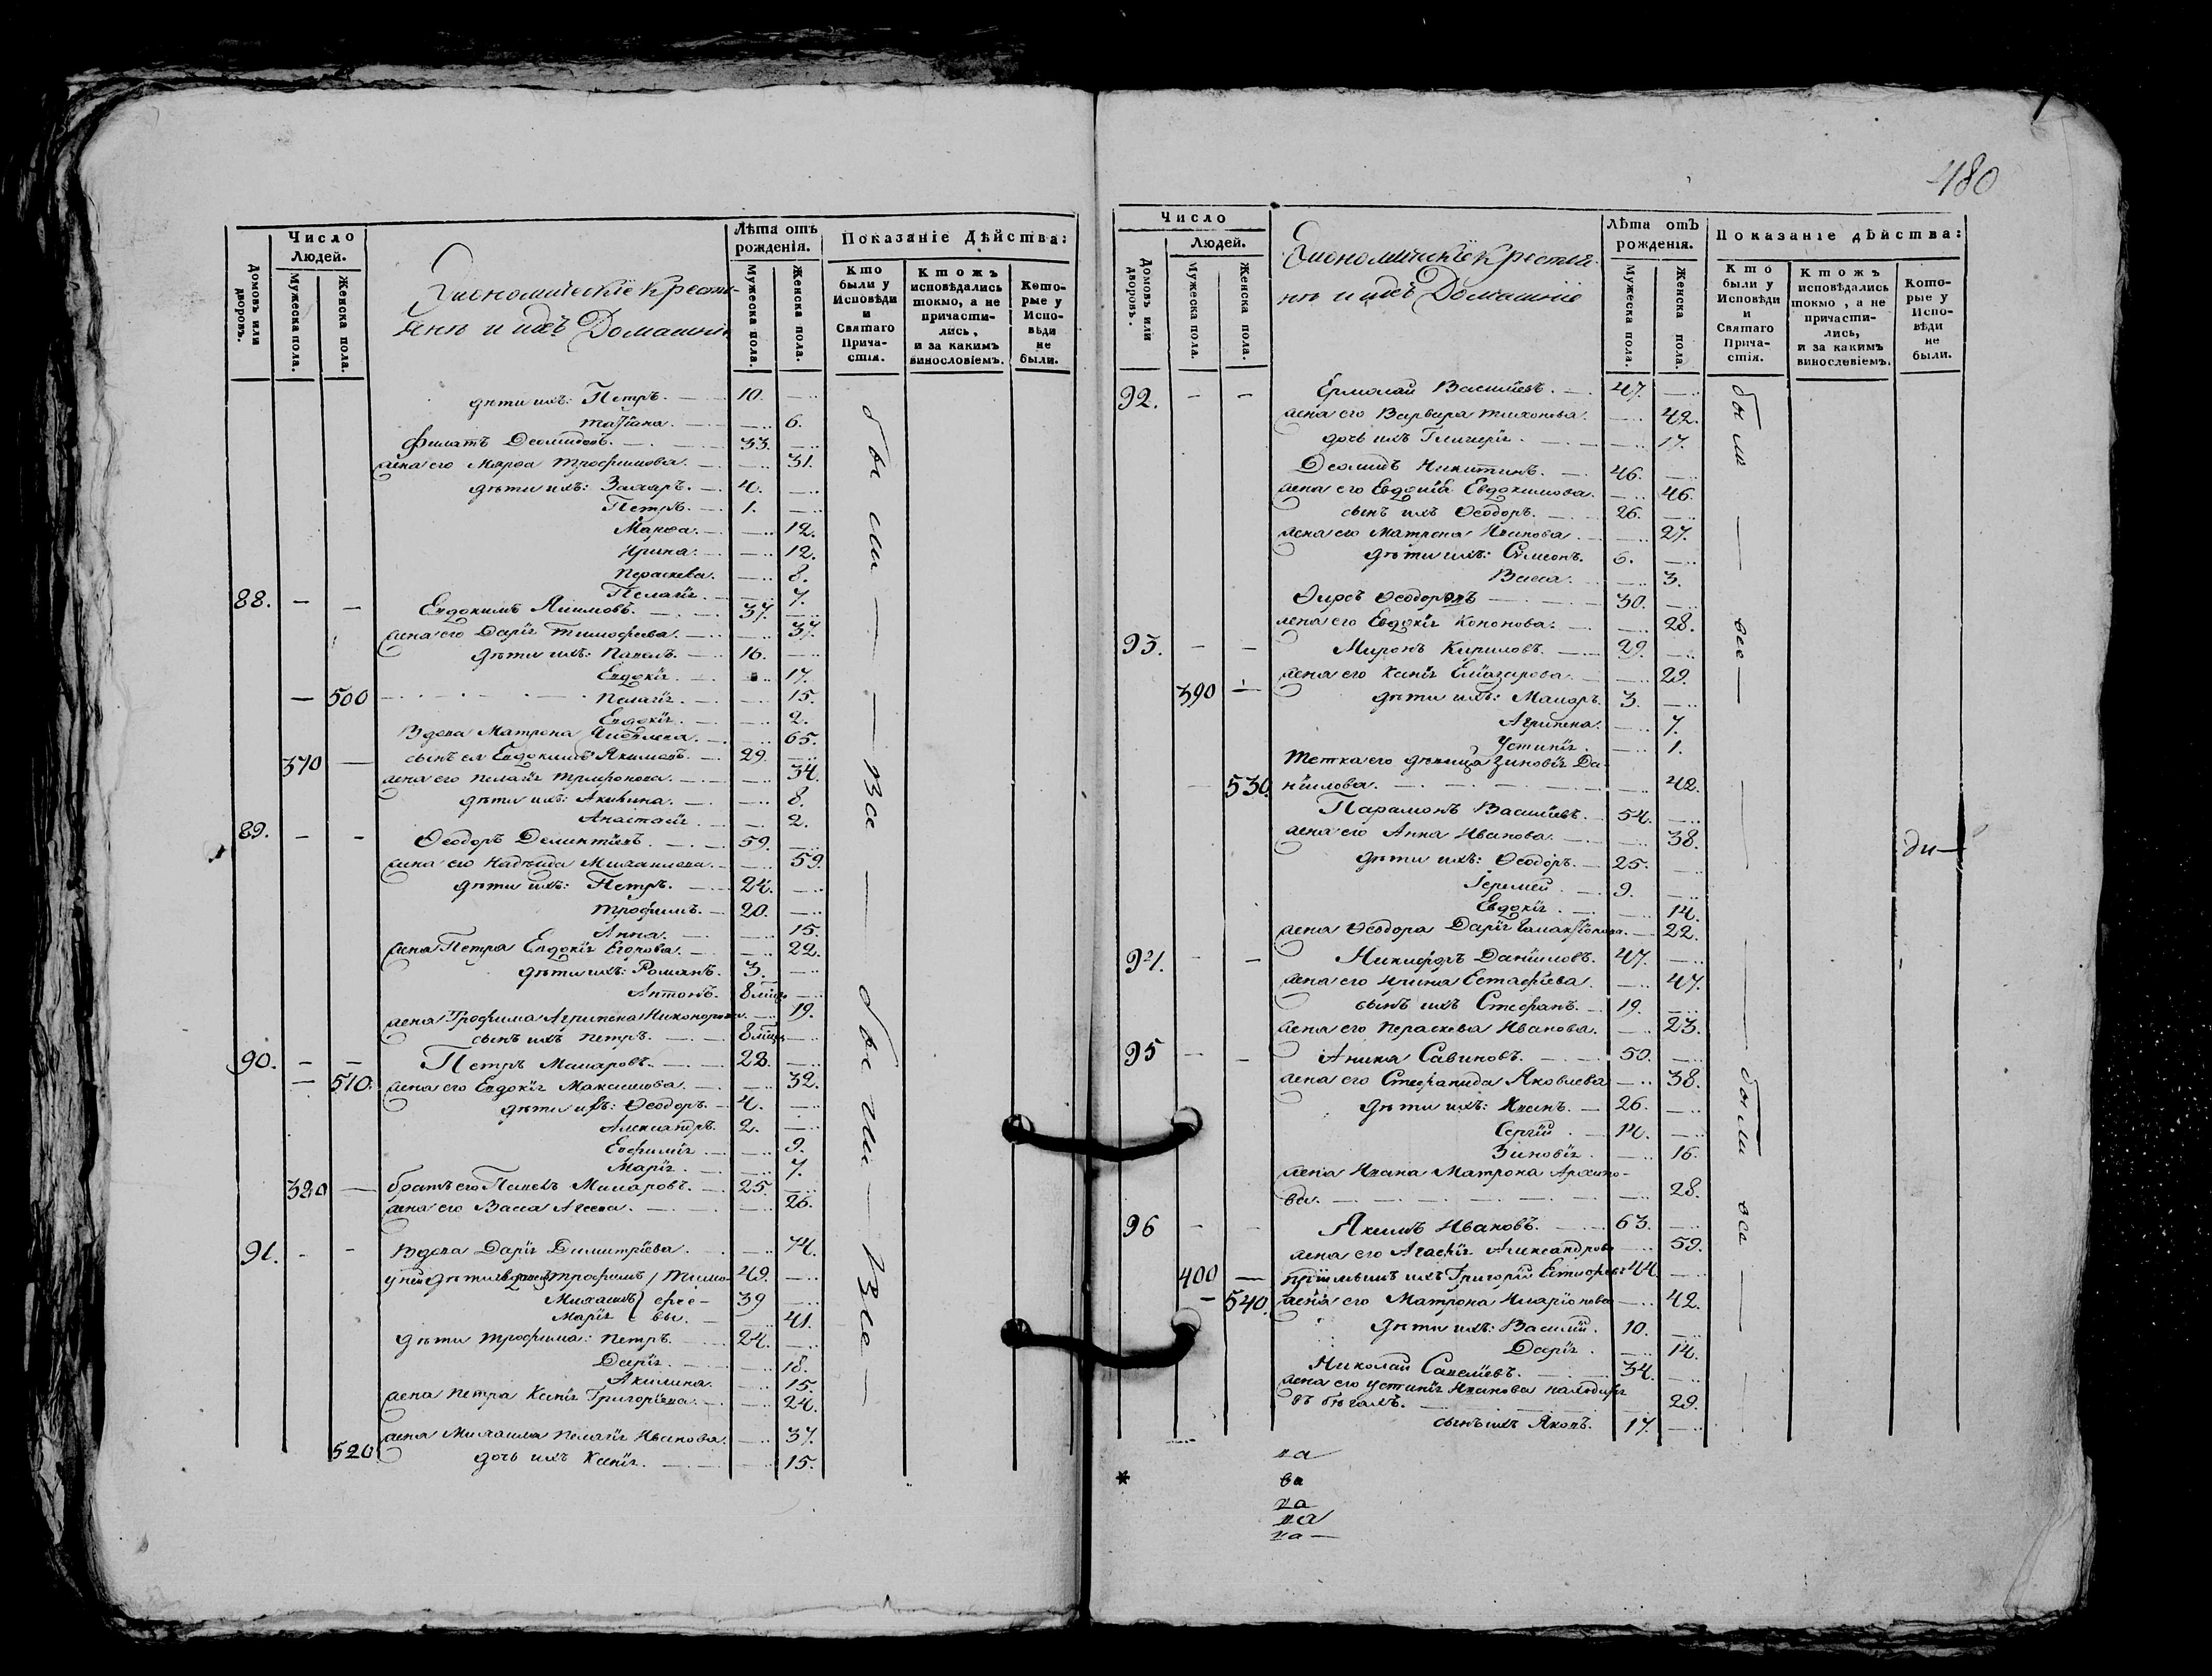 480
Число
Людей.
Домовъ или дворовъ.
Мужеска пола.
Женска пола.
Экономическiе крестья-
янѣ и ихъ Домашнiи
Лѣта отъ рожденiя.
Мужеска пола.
Женска пола.
Показанiе Дѣйства:
Кто были у Исповѣди и Святаго Прича-стiя.
Ктожъ исповѣдались токмо, а не причасти-лись, и за какимъ винословiемъ.
Кото-рые у Испо-вѣди не были.
дѣти ихъ: Петръ. 10.
Татiана. 6.
Филатъ Деомидовъ. 33.
жена его Марѳа Трофимова. 31.
дѣти ихъ: Захаръ. 4.
Петръ. 1.
Марѳа. 12.
Ирина. 12.
Пераскева. 8.
Пелагiя. 7.
88. Евдокимъ Якимовъ. 37.
жена его Дарiя Тимофеева. 37.
дѣти ихъ: Павелъ. 16.
Евдокiя. 17.
500 Пелагiя. 15.
Евдокiя. 2.
Вдова Матрона 65.
370 сынъ ея Евдокимъ Якимовъ. 29.
жена его Пелагiя Трифонова. 34.
дѣти ихъ: Акилина. 8.
Анастасiя. 2.
89. Ѳеодоръ Дементiевъ. 59.
жена его Надежда Михаилова. 59.
дѣти ихъ: Петръ. 24.
Трофимъ. 20.
Анна. 15.
жена Петра Евдокiя Егорова. 22.
дѣти ихъ: Романъ. 3.
Антонъ. 8 мцъ
жена Трофима Агрипена Никонорова. 19.
сынъ ихъ Петръ. 8 мцъ
90. Петръ Макаровъ. 28.
510. жена его Евдокiя Максимова. 32.
дѣти ихъ: Ѳеодоръ. 4.
Александръ. 2.
Евфимiя. 9.
Марiя. 7.
380 братъ его Павелъ Макаровъ. 25.
жена его Васса Агеева. 26.
91. Вдова Дарiя Димитрiева. 74.
у ней дѣти Трофимъ Тимо- 49.
Михаилъ фее- 39
Марiя вы. 41.
дѣти Трофима: Петръ. 24.
Дарiя. 18.
Акилина. 15.
жена Петра Ксенiя Григорiева. 24.
жена Михаила Пелагiя Иванова. 37.
520 дочь ихъ Ксенiя. 15.
были — все — были — все
Число
Людей.
Домовъ или дворовъ.
Мужеска пола.
Женска пола.
Экономическiе крестья-
нѣ и ихъ Домашнiе
Лѣта отъ рожденiя.
Мужеска пола.
Женска пола.
Показанiе дѣйства:
Кто были у Исповѣди и Святаго Прича-стiя.
Ктожъ исповѣдались токмо, а не причасти-лись, и за какимъ винословiемъ.
Кото-рые у Испо-вѣди не были.
92. Ермолай Василiевъ. 47.
жена его Варвара Тихонова. 42.
дочь ихъ Гликерiя. 17.
Деомидъ Никитинъ. 46.
жена его Евдокiя Евдокимова. 46.
сынъ ихъ Ѳеодоръ. 26.
жена его Матрона Иванова. 27.
дѣти ихъ: Симеонъ. 6.
Васса. 3.
Ѳирсъ Ѳеодоровъ 30.
жена его Евдокiя Кононова. 28.
93. Миронъ Кириловъ. 29.
жена его Ксенiя Елiазарова. 29.
390 дѣти ихъ: Макаръ. 3.
Агрипена. 7.
Устинiя. 1.
Тетка его дѣвица Зиновiя Да-
530. нiилова. 42.
Парамонъ Василiевъ. 54.
жена его Анна Иванова. 38.
дѣти ихъ: Ѳеодоръ. 25.
Iеремей. 9.
Евдокiя. 14.
жена Ѳеодора Дарiя 22.
94. Никифоръ Данiиловъ. 47.
жена его Ирина Естафiева. 47.
сынъ ихъ Стефанъ. 19.
жена его Пераскева Иванова. 23.
95 Аника Савиновъ. 50.
жена его Стефанида Яковлева 38.
дѣти ихъ: Иванъ. 26.
Сергiй. 14.
Зиновiя. 16.
жена Ивана Матрона Архипо-
ва. 28.
96 Якимъ Ивановъ. 63.
жена его Агафiя Александрова 59.
400 прiемышъ ихъ Григорiй 44.
540. жена его Матрона Иларiонова 42.
дѣти ихъ: Василiй. 10.
Дарiя. 14.
Николай Савелiевъ. 34.
жена его Устинiя Иванова находится
въ бѣгахъ. 29.
сынъ ихъ Яковъ. 17.
были — все — были все
на
ва
на
на
на